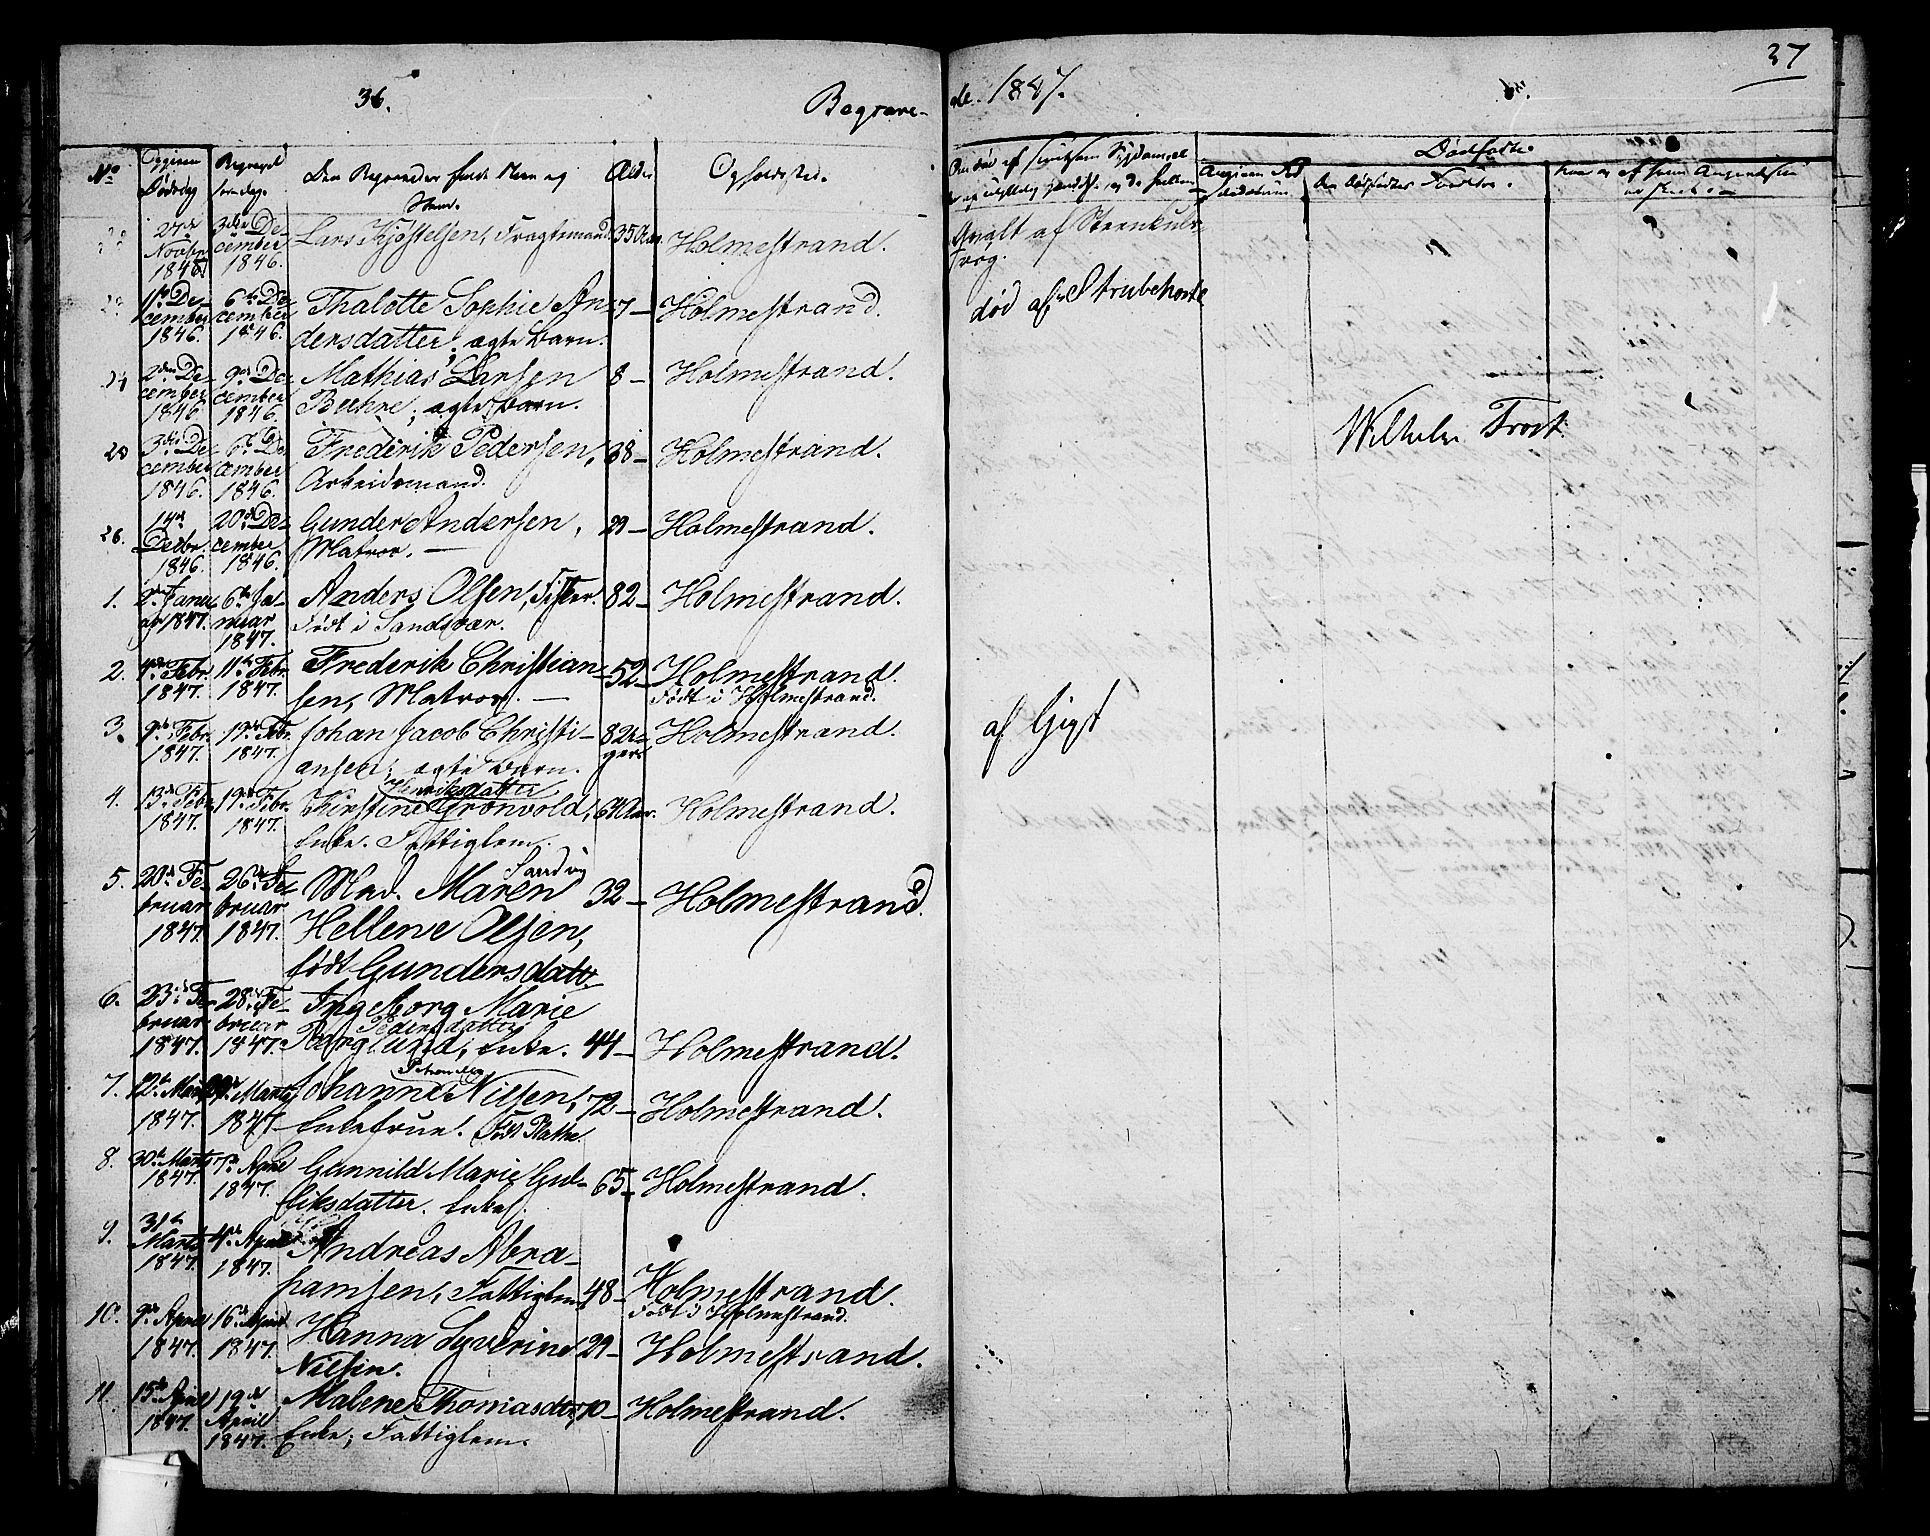 36.
Begrave-
No
Opgiven Dødsdag
Begravelsesdag.
Den Begravedes fulde Navn og
Stand.
Alder
Opholdssted.
27de Novbr 1846
3die December 1846.
Lars Kjøstelsen, Fragtemand.
35 Aar.
Holmestrand.
11te December 1846.
6te December 1846
Thalotte Sophie An-
dersdatter, ægte Barn.
7 —
Holmestrand.
2den December 1846
9de December 1846.
Mathias Larsen
ægte Barn.
8 —
Holmestrand.
3die December 1846.
6te December 1846.
Frederik Pedersen,
Arbeidsmand.
38 —
Holmestrand.
26.
14de Decbr. 1846.
20de December 1846.
Gunder Andersen,
Matros. —
29 —
Holmestrand.
1.
2den Januar 1847.
6te Januar 1847.
Anders Olsen, Fisker.
Født i Sandsvær.
82 —
Holmestrand.
2.
4de Febr. 1847.
11te Febr. 1847.
Frederik Christian-
sen, Matros. —
52 —
Holmestrand.
Født i Holmestrand.
3.
9de Febr. 1847.
Febr. 1847.
Johan Jacob Christi-
ansen, ægte Barn.
8 Uger
Holmestrand.
4.
13de Febr. 1847.
19de Febr. 1847.
Henriksdatter
Kirstine Grønvold,
Enke. Fattiglem.
64 Aar.
Holmestrand.
5.
20de Februar 1847.
26de Februar 1847.
Sandvig
Mad. Maren
Hellene Olsen,
født Gundersdatt.
32 —
Holmestrand.
6.
23de Februar 1847.
28de Februar 1847.
Ingeborg Marie
Pedersdatter
Berglund, Enke.
44 —
Holmestrand.
7.
12te Marts 1847.
Marts 1847
Petronella
Johanne Nilsen,
Enkefrue. Født Plathe.
72 —
Holmestrand.
8.
30te Marts 1847.
7de April 1847.
Gunnild Marie Gul-
liksdatter. Enke.
65 —
Holmestrand.
9.
31te Marts 1847.
4de April 1847.
Andreas Abra-
hamsen, Fattiglem
48 —
Holmestrand.
Født i Holmestrand.
10.
9de April 1847.
16de April 1847.
Hanna Syverine
Nilsen.
29 —
Holmestrand.
11.
15de April 1847.
19de April 1847.
Malene Thomasdtr,
Enke; Fattiglem.
70 —
Holmestrand.
37
de. 1847.
Om død af smitsom Sygdom, el
Dødfødte.
Qvalt af Steenkulsrøg.
død af Strubehoste
Wilhelm Trost.
af Gigt